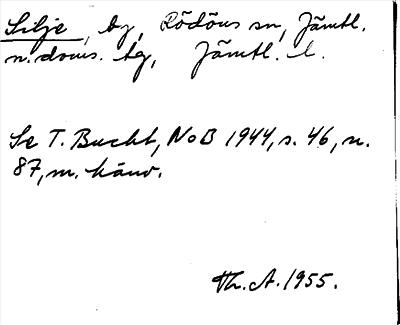 Silje, by, Rödöns sn, Jämtl.
n. doms. tg, Jämtl. l.
Se T. Bucht, NoB 1944, s. 46, n.
87, m. hänv.
Th. A. 1955.